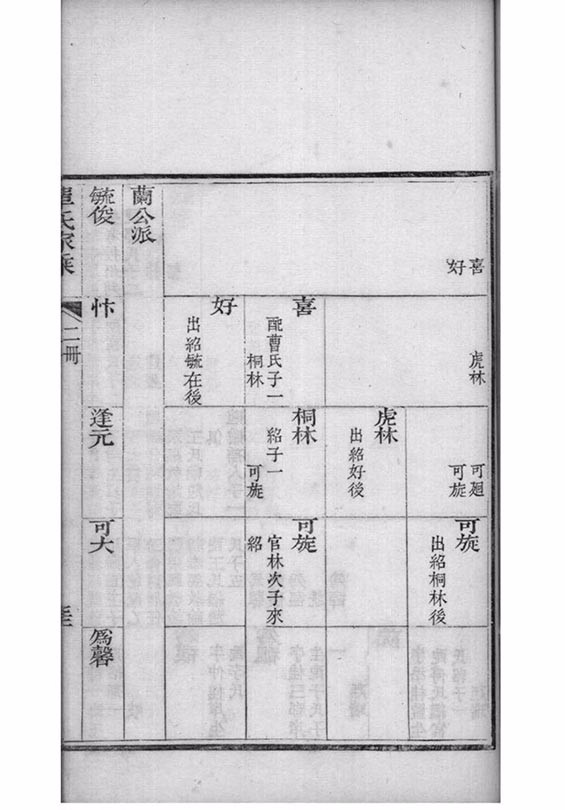 喜
好
虎林
可廻
可旋
可旋
出紹桐林後
虎林
出紹好後
喜
配曹氏子一
桐林
桐林
紹子一
可旋
可旋
官林次子來
紹
好
出紹毓在後
蘭公派
毓俊
忭
逢元
可大
爲馨
氏家乘
二冊